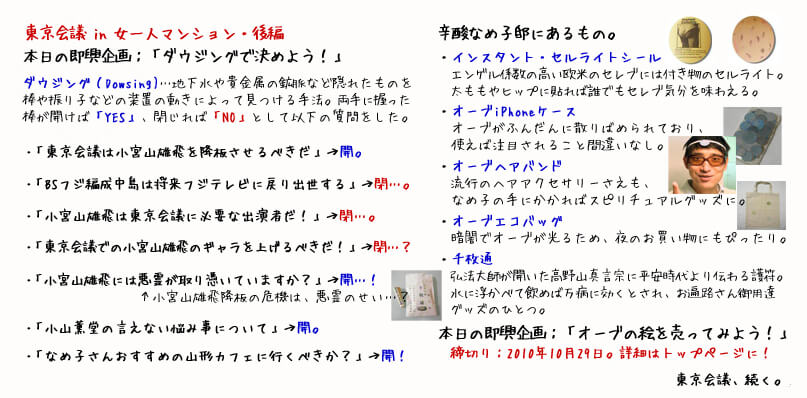 東京会議 in 女一人マンション・後編
本日の即興企画；「ダウジングで決めよう！」
ダウジング（Dowsing)…地下水や貴金属の鉱脈など隠れたものを
棒や振り子などの装置の動きによって見つける手法。両手に握った
棒が開けば「YES」、閉じれば「NO」として以下の質問をした。
・「東京会議は小宮山雄飛を降板させるべきだ」→開。
・「BSフジ編成中島は将来フジテレビに戻り出世する」→閉…。
・「小宮山雄飛は東京会議に必要な出演者だ！」→閉…。
・「東京会議での小宮山雄飛のギャラを上げるべきだ！」→閉…？
・「小宮山雄飛には悪霊が取り憑いていますか？」→開…！
↑小宮山雄飛降板の危機は、悪霊のせい…？
・「小山薫堂の言えない悩み事について」→開。
・「なめ子さんおすすめの山形カフェに行くべきか？」→開！
辛酸なめ子邸にあるもの。
・インスタント・セルライトシール
エンゲル係数の高い欧米のセレブには付き物のセルライト。
太ももやヒップに貼れば誰でもセレブ気分を味わえる。
・オーブiPhoneケース
オーブがふんだんに散りばめられており、
使えば注目されること間違いなし。
・オーブヘアバンド
流行のヘアアクセサリーさえも、
なめ子の手にかかればスピリチュアルグッズに。
・オーブエコバッグ
暗闇でオーブが光るため、夜のお買い物にもぴったり。
・千枚通
弘法大師が開いた高野山真言宗に平安時代より伝わる護符。
水に浮かべて飲めば万病に効くとされ、お遍路さん御用達
グッズのひとつ。
本日の即興企画；「オーブの絵を売ってみよう！」
締切り；2010年10月29日。詳細はトップページに！
東京会議、続く。